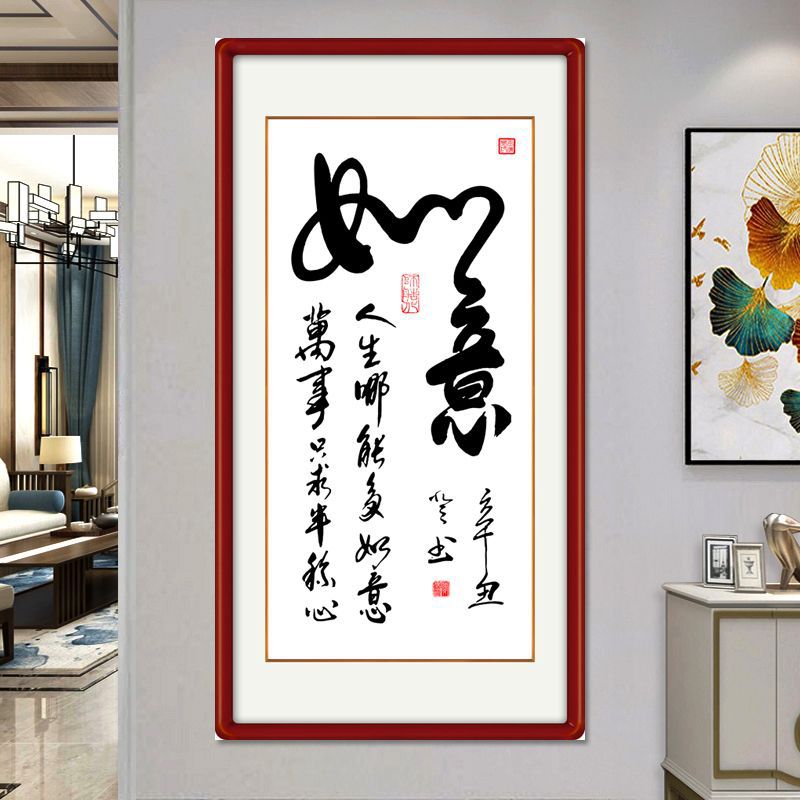 如意
人生哪能多如意
萬事只求半稱心
辛丑
书